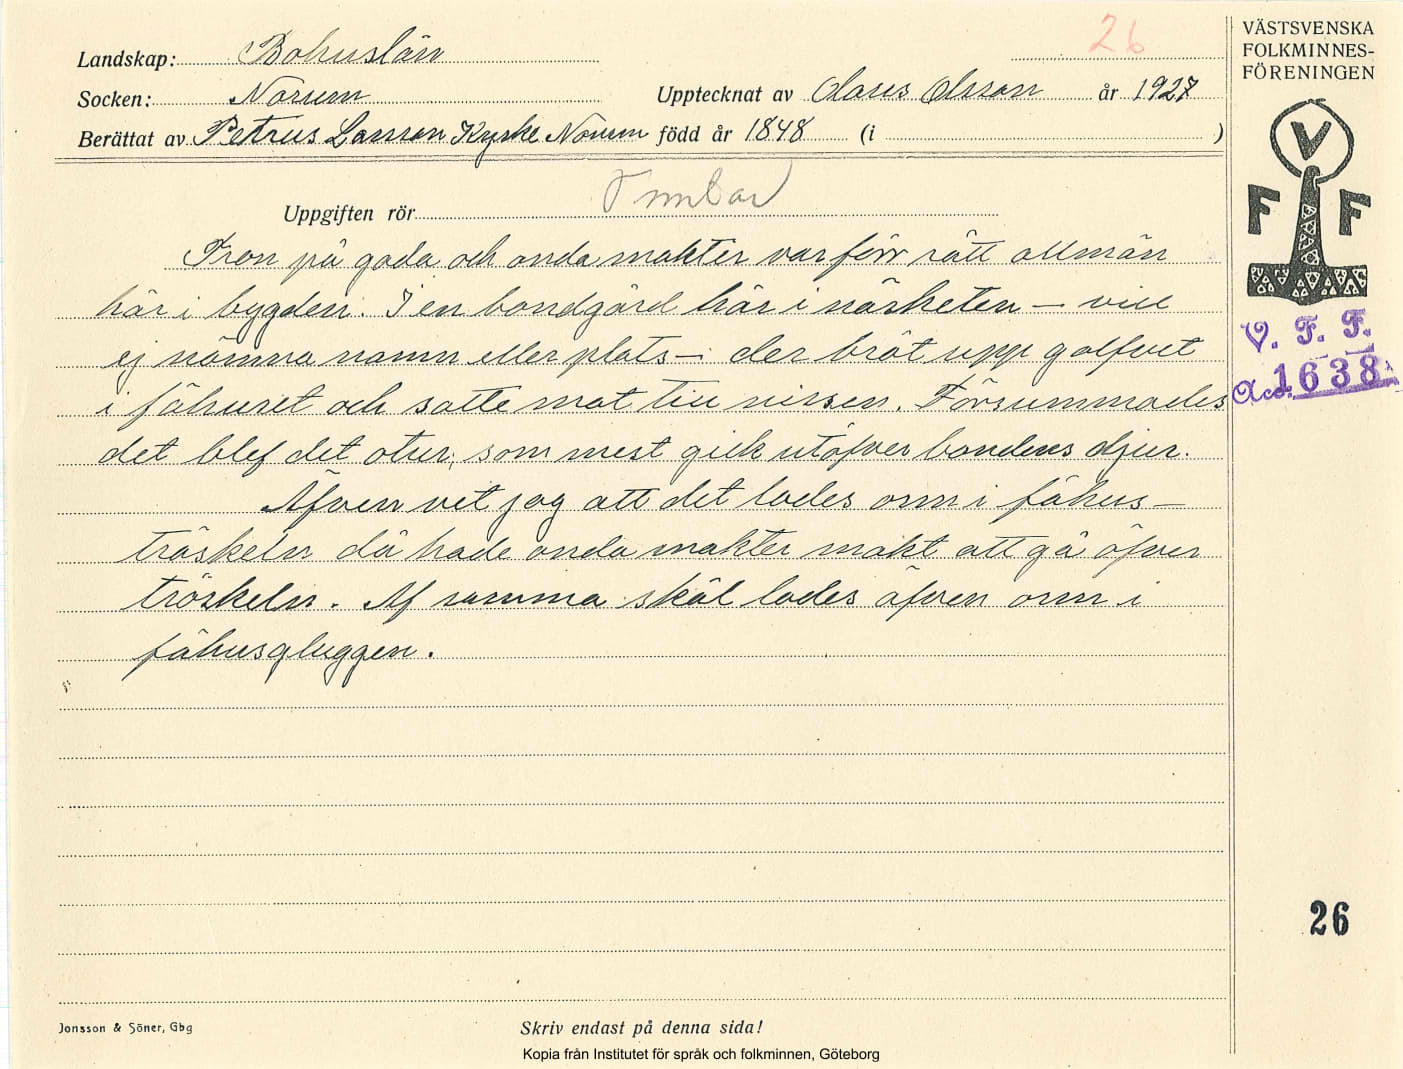 26
VÄSTSVENSKA
FOLKMINNES-
FÖRENINGEN
Landskap: Bohuslän
Socken: Norum Upptecknat av Claus Olsson år 1927
Berättat av Petrus Larsson Kyrke Norum född år 1848 (i )
V
F F
Uppgiften rör Tomtar
Tron på goda och onda makter var förr rätt allmän
här i bygden. I en bondgård här i närheten – vill
ej nämna namn eller plats – der bröt upp golfvet
i fähuset och satte mat till nissen. Försummades
det blef det otur, som mest gick utöfver bondens djur.
Äfven vet jag att det lades orm i fähus-
tröskeln då hade onda makter makt att gå öfver
tröskeln. Af samma skäl lades äfven orm i
fähusgluggen.
V. F. F.
Acc. 1638
26
Jonsson & Söner, Gbg
Skriv endast på denna sida!
Kopia från Institutet för språk och folkminnen, Göteborg